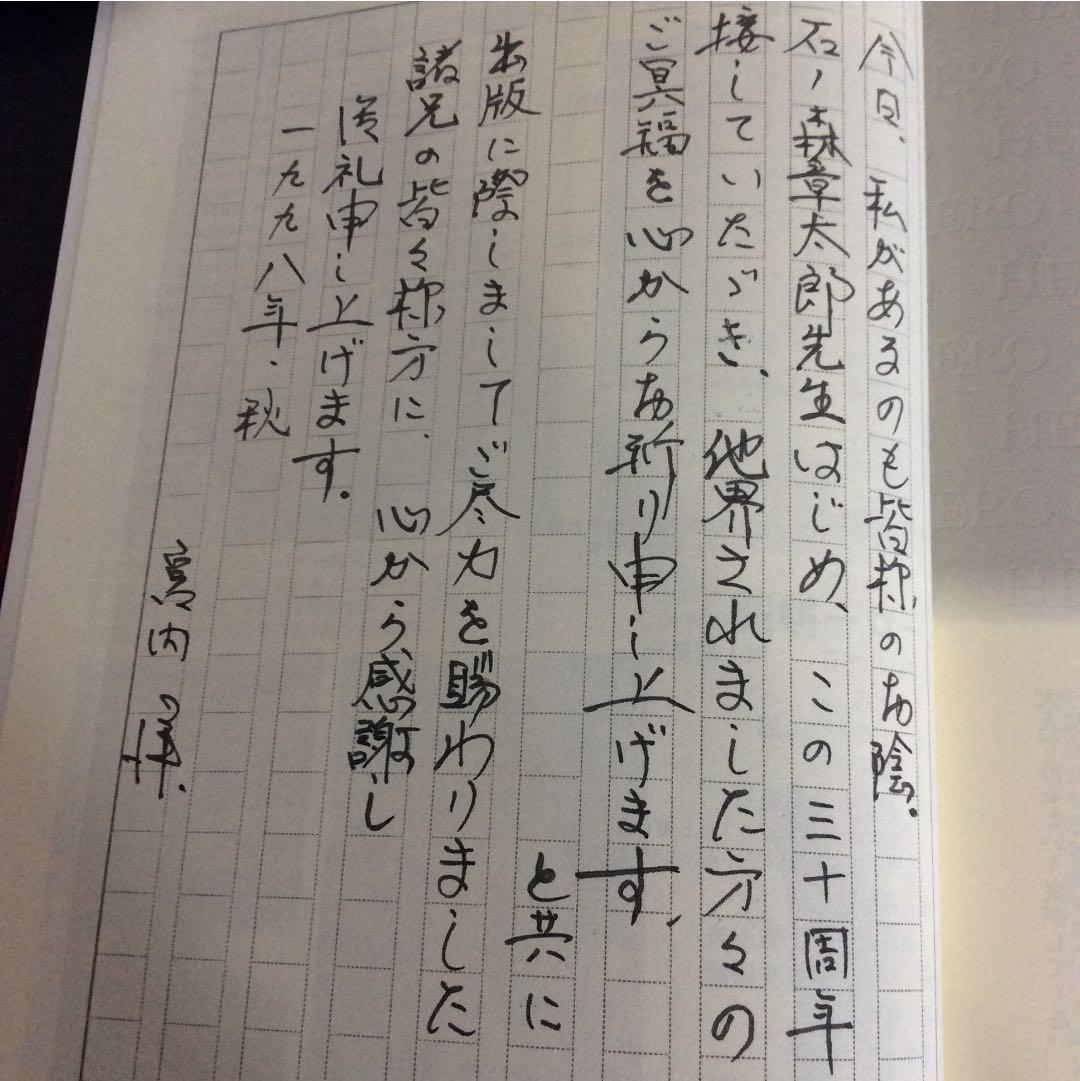 今日、私があるのも皆様のお陰。
石ノ森章太郎先生はじめ、この三十周年
接していたゞき、他界されました方々の
ご冥福を心からお祈り申し上げます。
と共に
出版に際しましてご尽力を賜わりました
諸兄の皆々様方に、心から感謝し
御礼申し上げます。
一九九八年・秋